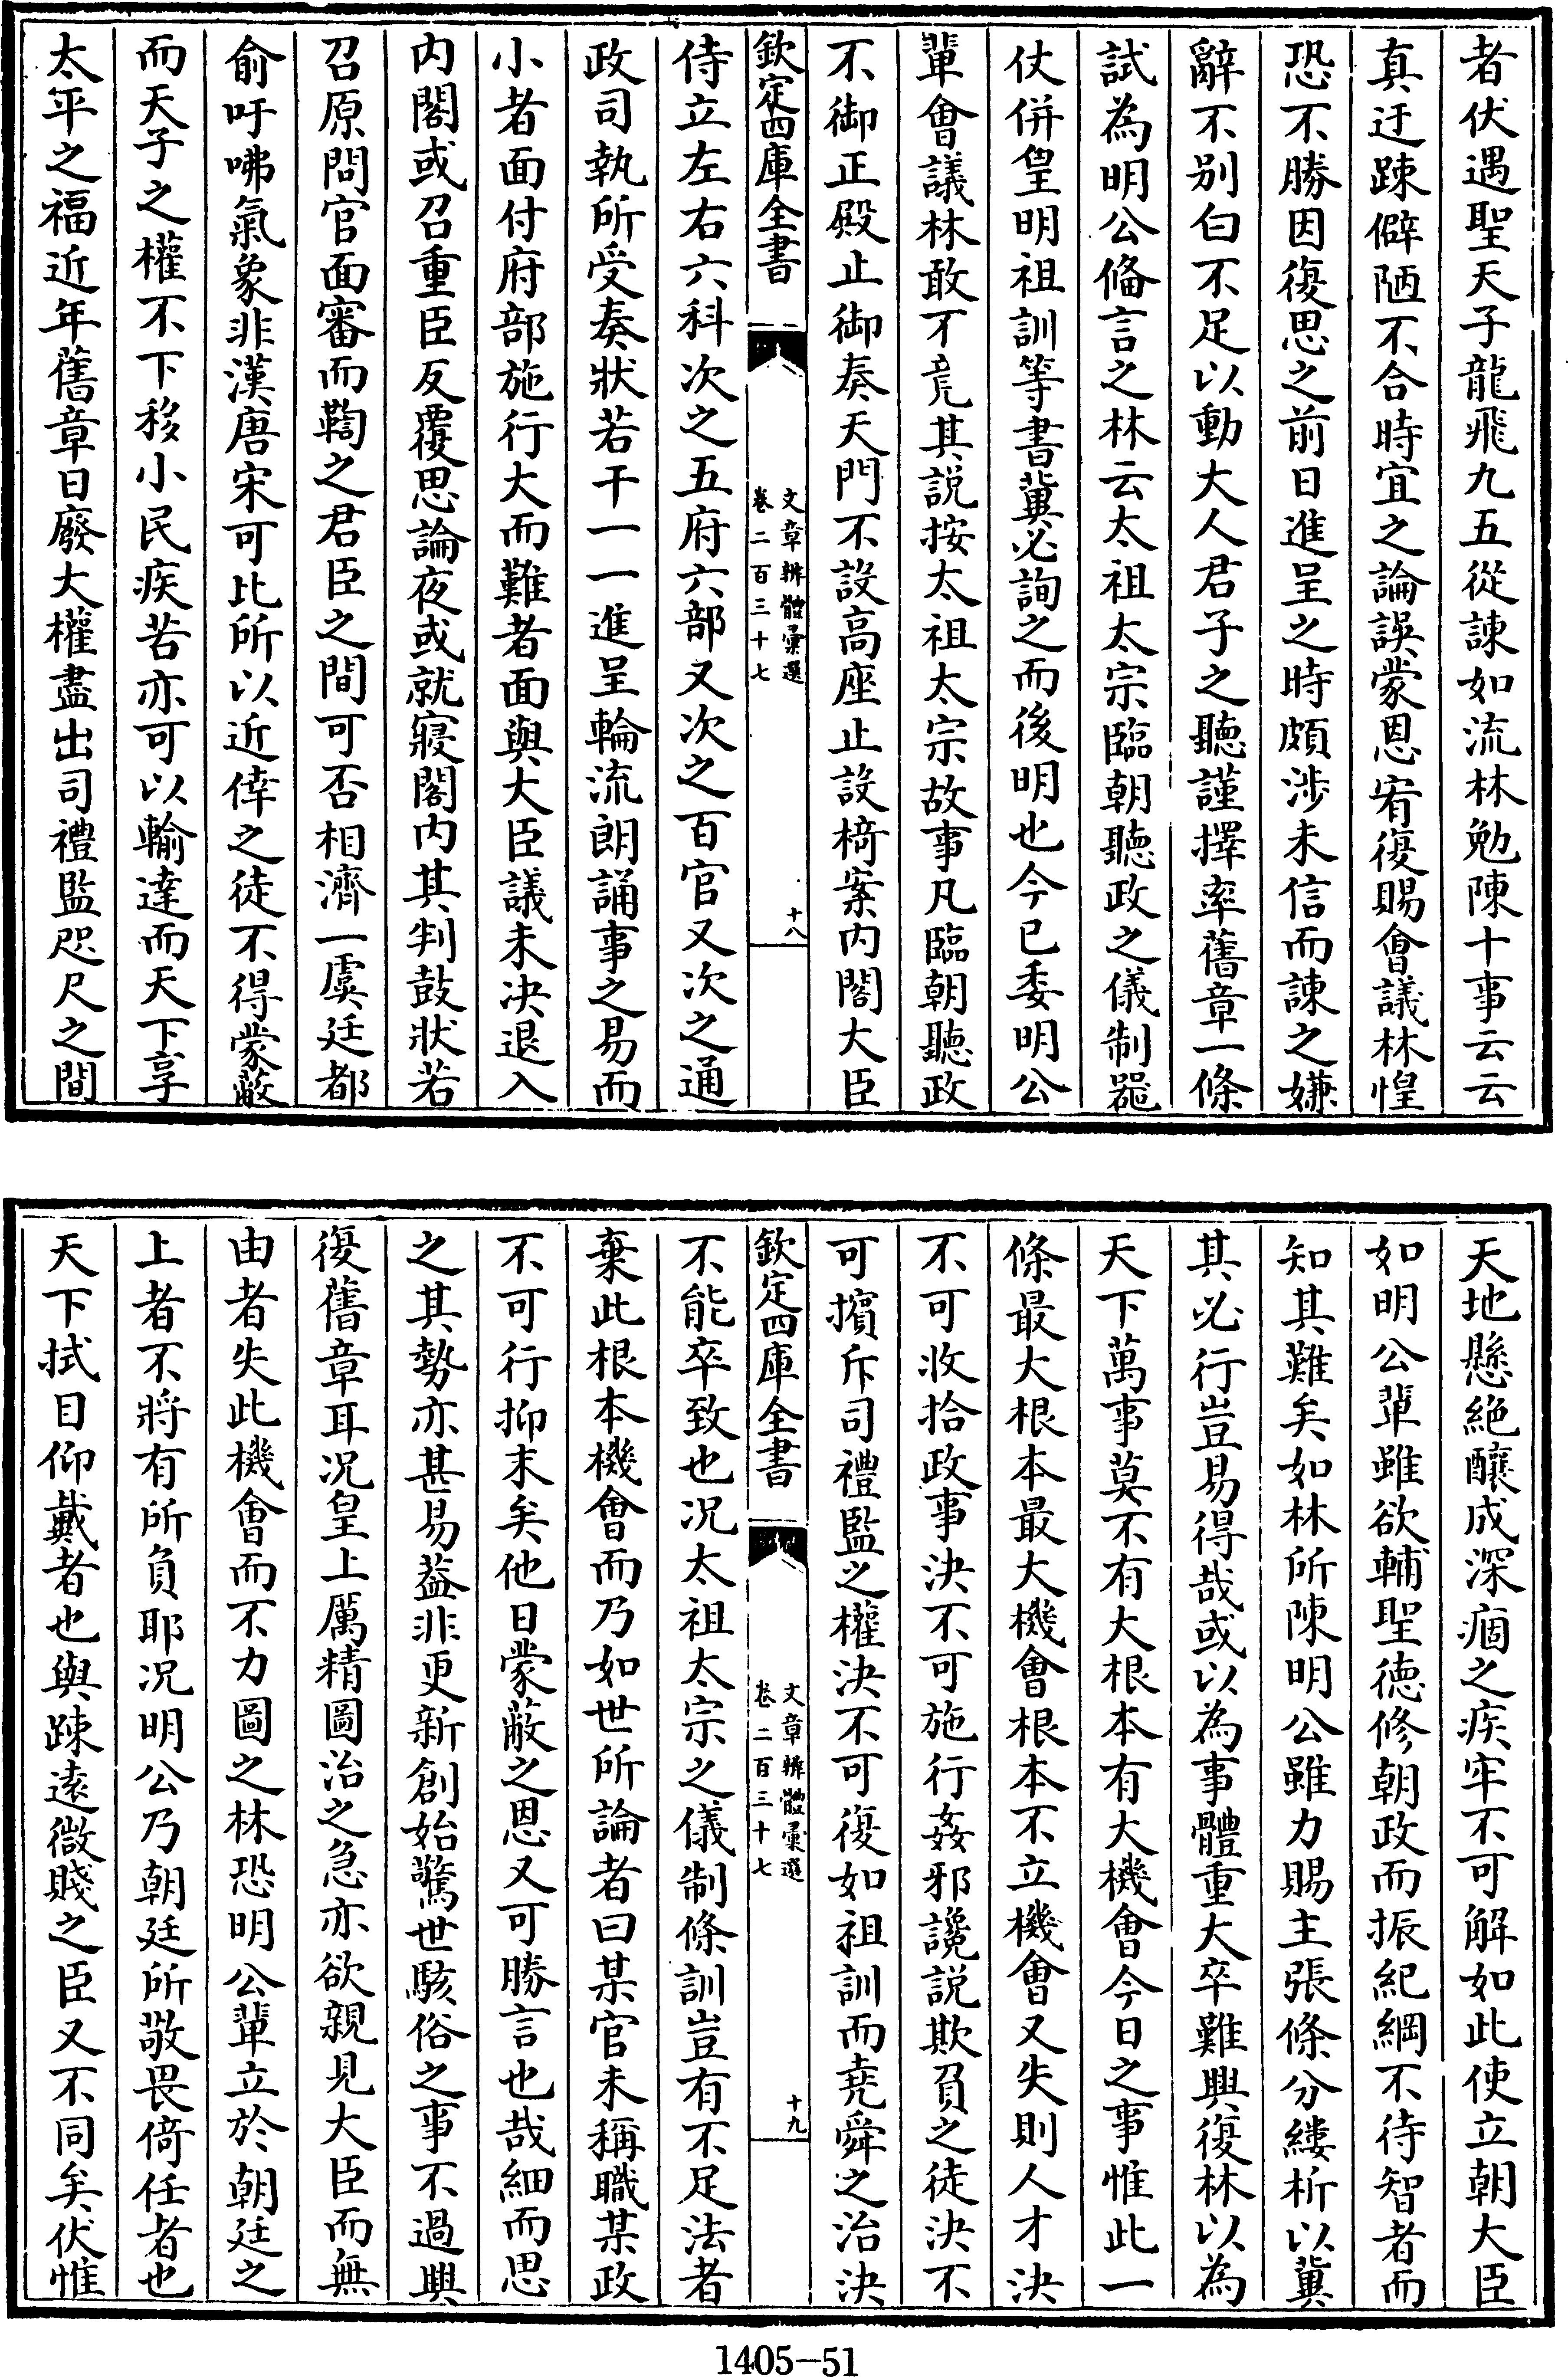 者伏遇聖天子龍飛九五從諫如流林勉陳十事云云
真迂踈僻陋不合時宜之論誤蒙恩宥復賜㑹議林惶
恐不勝因復思之前日進呈之時頗涉未信而諫之嫌
辭不别白不足以動大人君子之聽謹擇率舊章一條
試為明公備言之林云太祖太宗臨朝聽政之儀制器
仗併皇明祖訓等書冀必詢之而後明也今已委明公
輩㑹議林敢不竟其説按太祖太宗故事凡臨朝聽政
不御正殿止御奏天門不設高座止設椅案内閣大臣
欽定四庫全書
文章辨體彙選
卷二百三十七
十八
侍立左右六科次之五府六部又次之百官又次之通
政司執所受奏狀若干一一進呈輪流朗誦事之易而
小者面付府部施行大而難者面與大臣議未决退入
内閣或召重臣反覆思論夜或就寢閣内其判鼓狀若
召原問官面審而鞫之君臣之間可否相濟一虞廷都
俞吁咈氣象非漢唐宋可比所以近倖之徒不得蒙蔽
而天子之權不下移小民疾苦亦可以輸達而天下享
太平之福近年舊章日廢大權盡出司禮監咫尺之間
天地懸絶釀成深痼之疾牢不可解如此使立朝大臣
如明公輩雖欲輔聖德修朝政而振紀綱不待智者而
知其難矣如林所陳明公雖力賜主張條分縷析以冀
其必行豈易得哉或以為事體重大卒難興復林以為
天下萬事莫不有大根本有大機㑹今日之事惟此一
條最大根本最大機㑹根本不立機㑹又失則人才决
不可收拾政事决不可施行姦邪讒説欺負之徒决不
可擯斥司禮監之權决不可復如祖訓而堯舜之治決
欽定四庫全書
文章辨體彙選
卷二百三十七
十九
不能卒致也况太祖太宗之儀制條訓豈有不足法者
棄此根本機㑹而乃如世所論者曰某官未稱職某政
不可行抑末矣他日蒙蔽之恩又可勝言也哉細而思
之其勢亦甚易葢非更新創始驚世駭俗之事不過興
復舊章耳况皇上厲精圖治之急亦欲親見大臣而無
由者失此機㑹而不力圖之林恐明公輩立於朝廷之
上者不將有所負耶况明公乃朝廷所敬畏倚任者也
天下拭目仰戴者也與踈逺微賤之臣又不同矣伏惟
1405—51